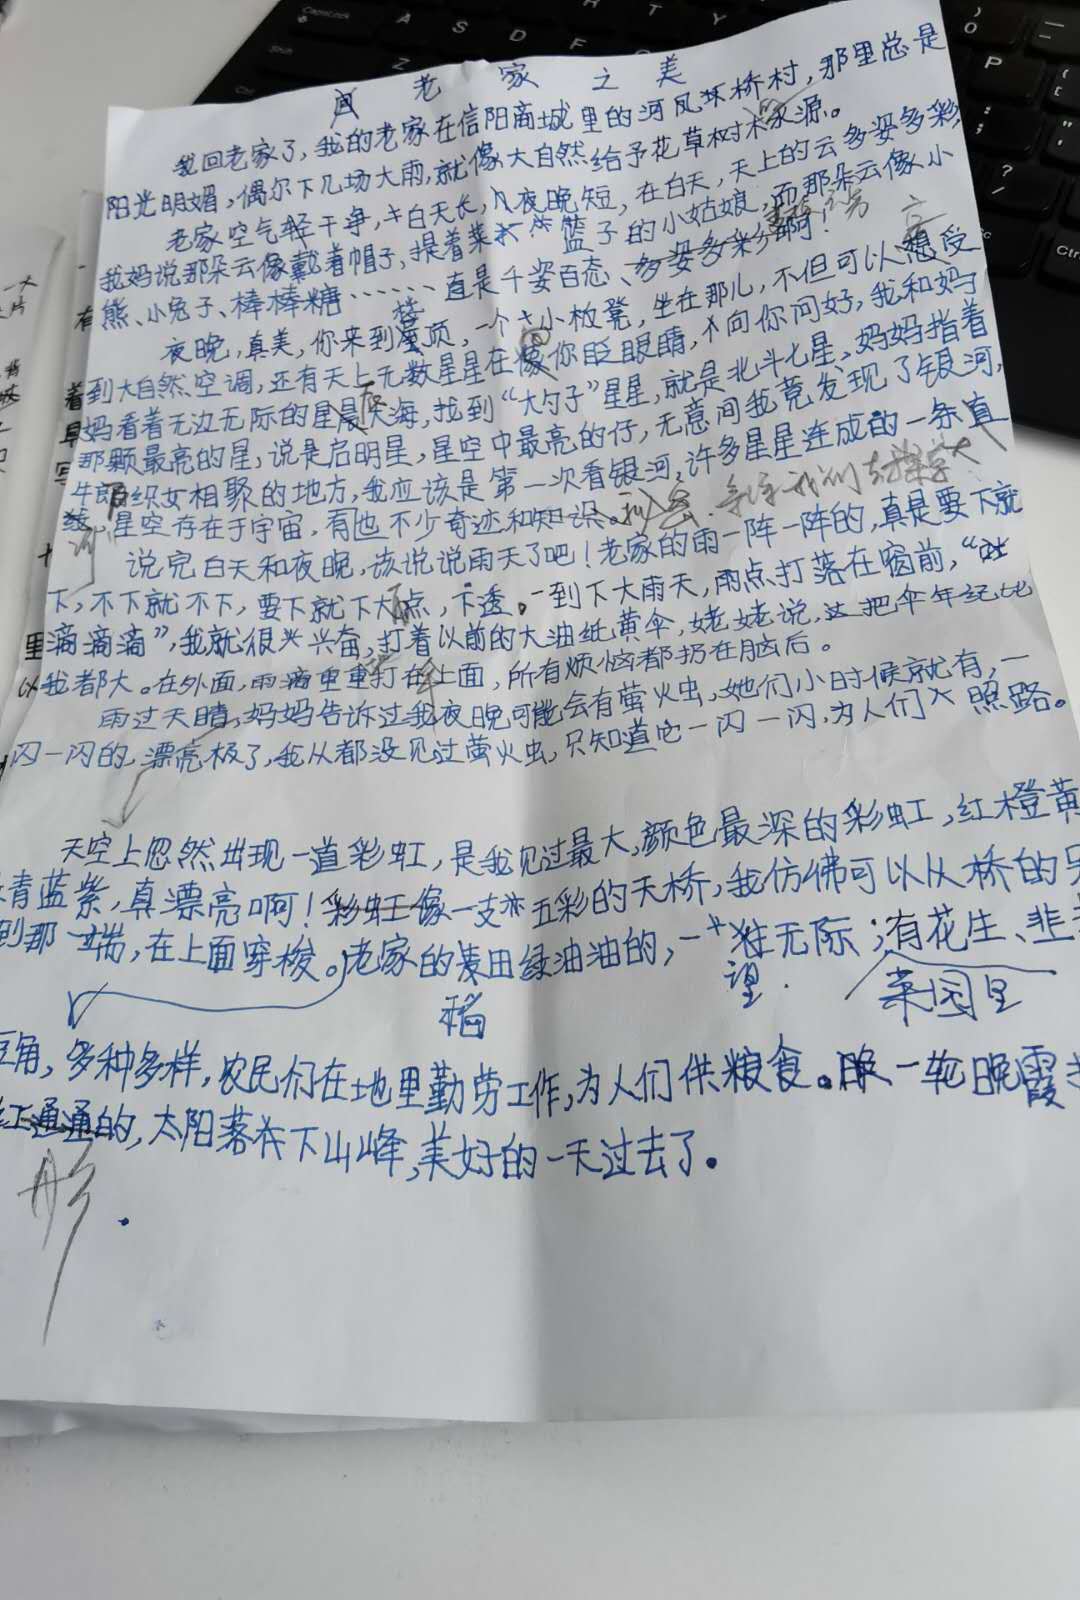 老家之美
我回老家了，我的老家在信阳商城里的河凤环桥村，那里总是
阳光明媚，偶尔下几场大雨，就像大自然给予花草树木水源。
老家空气轻干净，白天长，夜晚短，在白天，天上的云多姿多彩，
我妈说那朵云像戴着帽子，提着菜篮子的小姑娘，而那朵云像小
熊、小兔子、棒棒糖……直是千姿百态、多姿多彩啊！
夜晚，真美，你来到楼顶，一个小板凳，坐在那儿，不但可以享受
到大自然空调，还有天上无数星星在像你眨眼睛，向你问好，我和妈
妈看着无边无际的星辰大海，找到“大勺子”星星，就是北斗七星，妈妈指着
那颗最亮的星，说是启明星，星空中最亮的仔，无意间我竟发现了银河，
牛郎织女相聚的地方，我应该是第一次看银河，许多星星连成的一条直
线，星空存在于宇宙，有也不少奇迹和知识。
说完白天和夜晚，该说说雨天了吧！老家的雨一阵一阵的，真是要下就
下，不下就不下，要下就下大点，下透。一到下大雨天，雨点打落在窗前，“
滴滴滴”，我就很兴奋，打着以前的大油纸黄伞，姥姥说，这把伞年纪比
我都大。在外面，雨滴重重打在上面，所有烦恼都扔在脑后。
雨过天晴，妈妈告诉过我夜晚可能会有萤火虫，她们小时候就有，一
闪一闪的，漂亮极了，我从都没见过萤火虫，只知道它一闪一闪，为人们照路。
天空上忽然出现一道彩虹，是我见过最大，颜色最深的彩虹，红橙黄
青蓝紫，真漂亮啊！彩虹像一支五彩的天桥，我仿佛可以从桥的另
到那一端，在上面穿梭。老家的稻田绿油油的，一望无际；菜园里有花生、韭
角，多种多样，农民们在地里勤劳工作，为人们供粮食。一轮晚霞
红通通的，太阳落下山峰，美好的一天过去了。